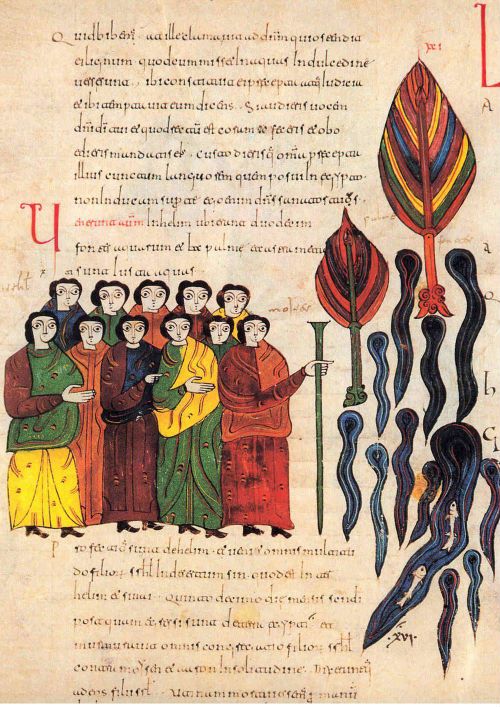 Quid bibem; . at ille clamauit ad dnm qui ostendit
ei lignum . quod cum misisset in aquas in dulcedine
uerse sunt . ibi constituit ei precepta atq; iudicia
et ibi temtauit eum dicens . Si audieris uocem
dni di tui et quod rectum est coram eo feceris et obe
dieris mandatis eis . custodierisq; omnia precepta
illius cunctum languorem quem posui in egypto
non inducam super te ego enim dns sanator tuus
Uenerunt autem in helim ubi erant duodecim
fontes aquarum et lxx palme et castrameta
ti sunt iuxta aquas
xxi
palme
fontes
srhl
moises
Profectiq; sunt de helim . et uenit omnis multitu
do filior srhl in desertum sin . quod est inter
helim et sinai . Quinto decimo die mensis secundi
postquam egressi sunt de terra egypti . et
murmurauit omnis congregatio filior srhl
contra moysen et aaron in solitudine . Dixeruntq;
ad eos filii srl . Utinam mortui essemus p manum
xvi